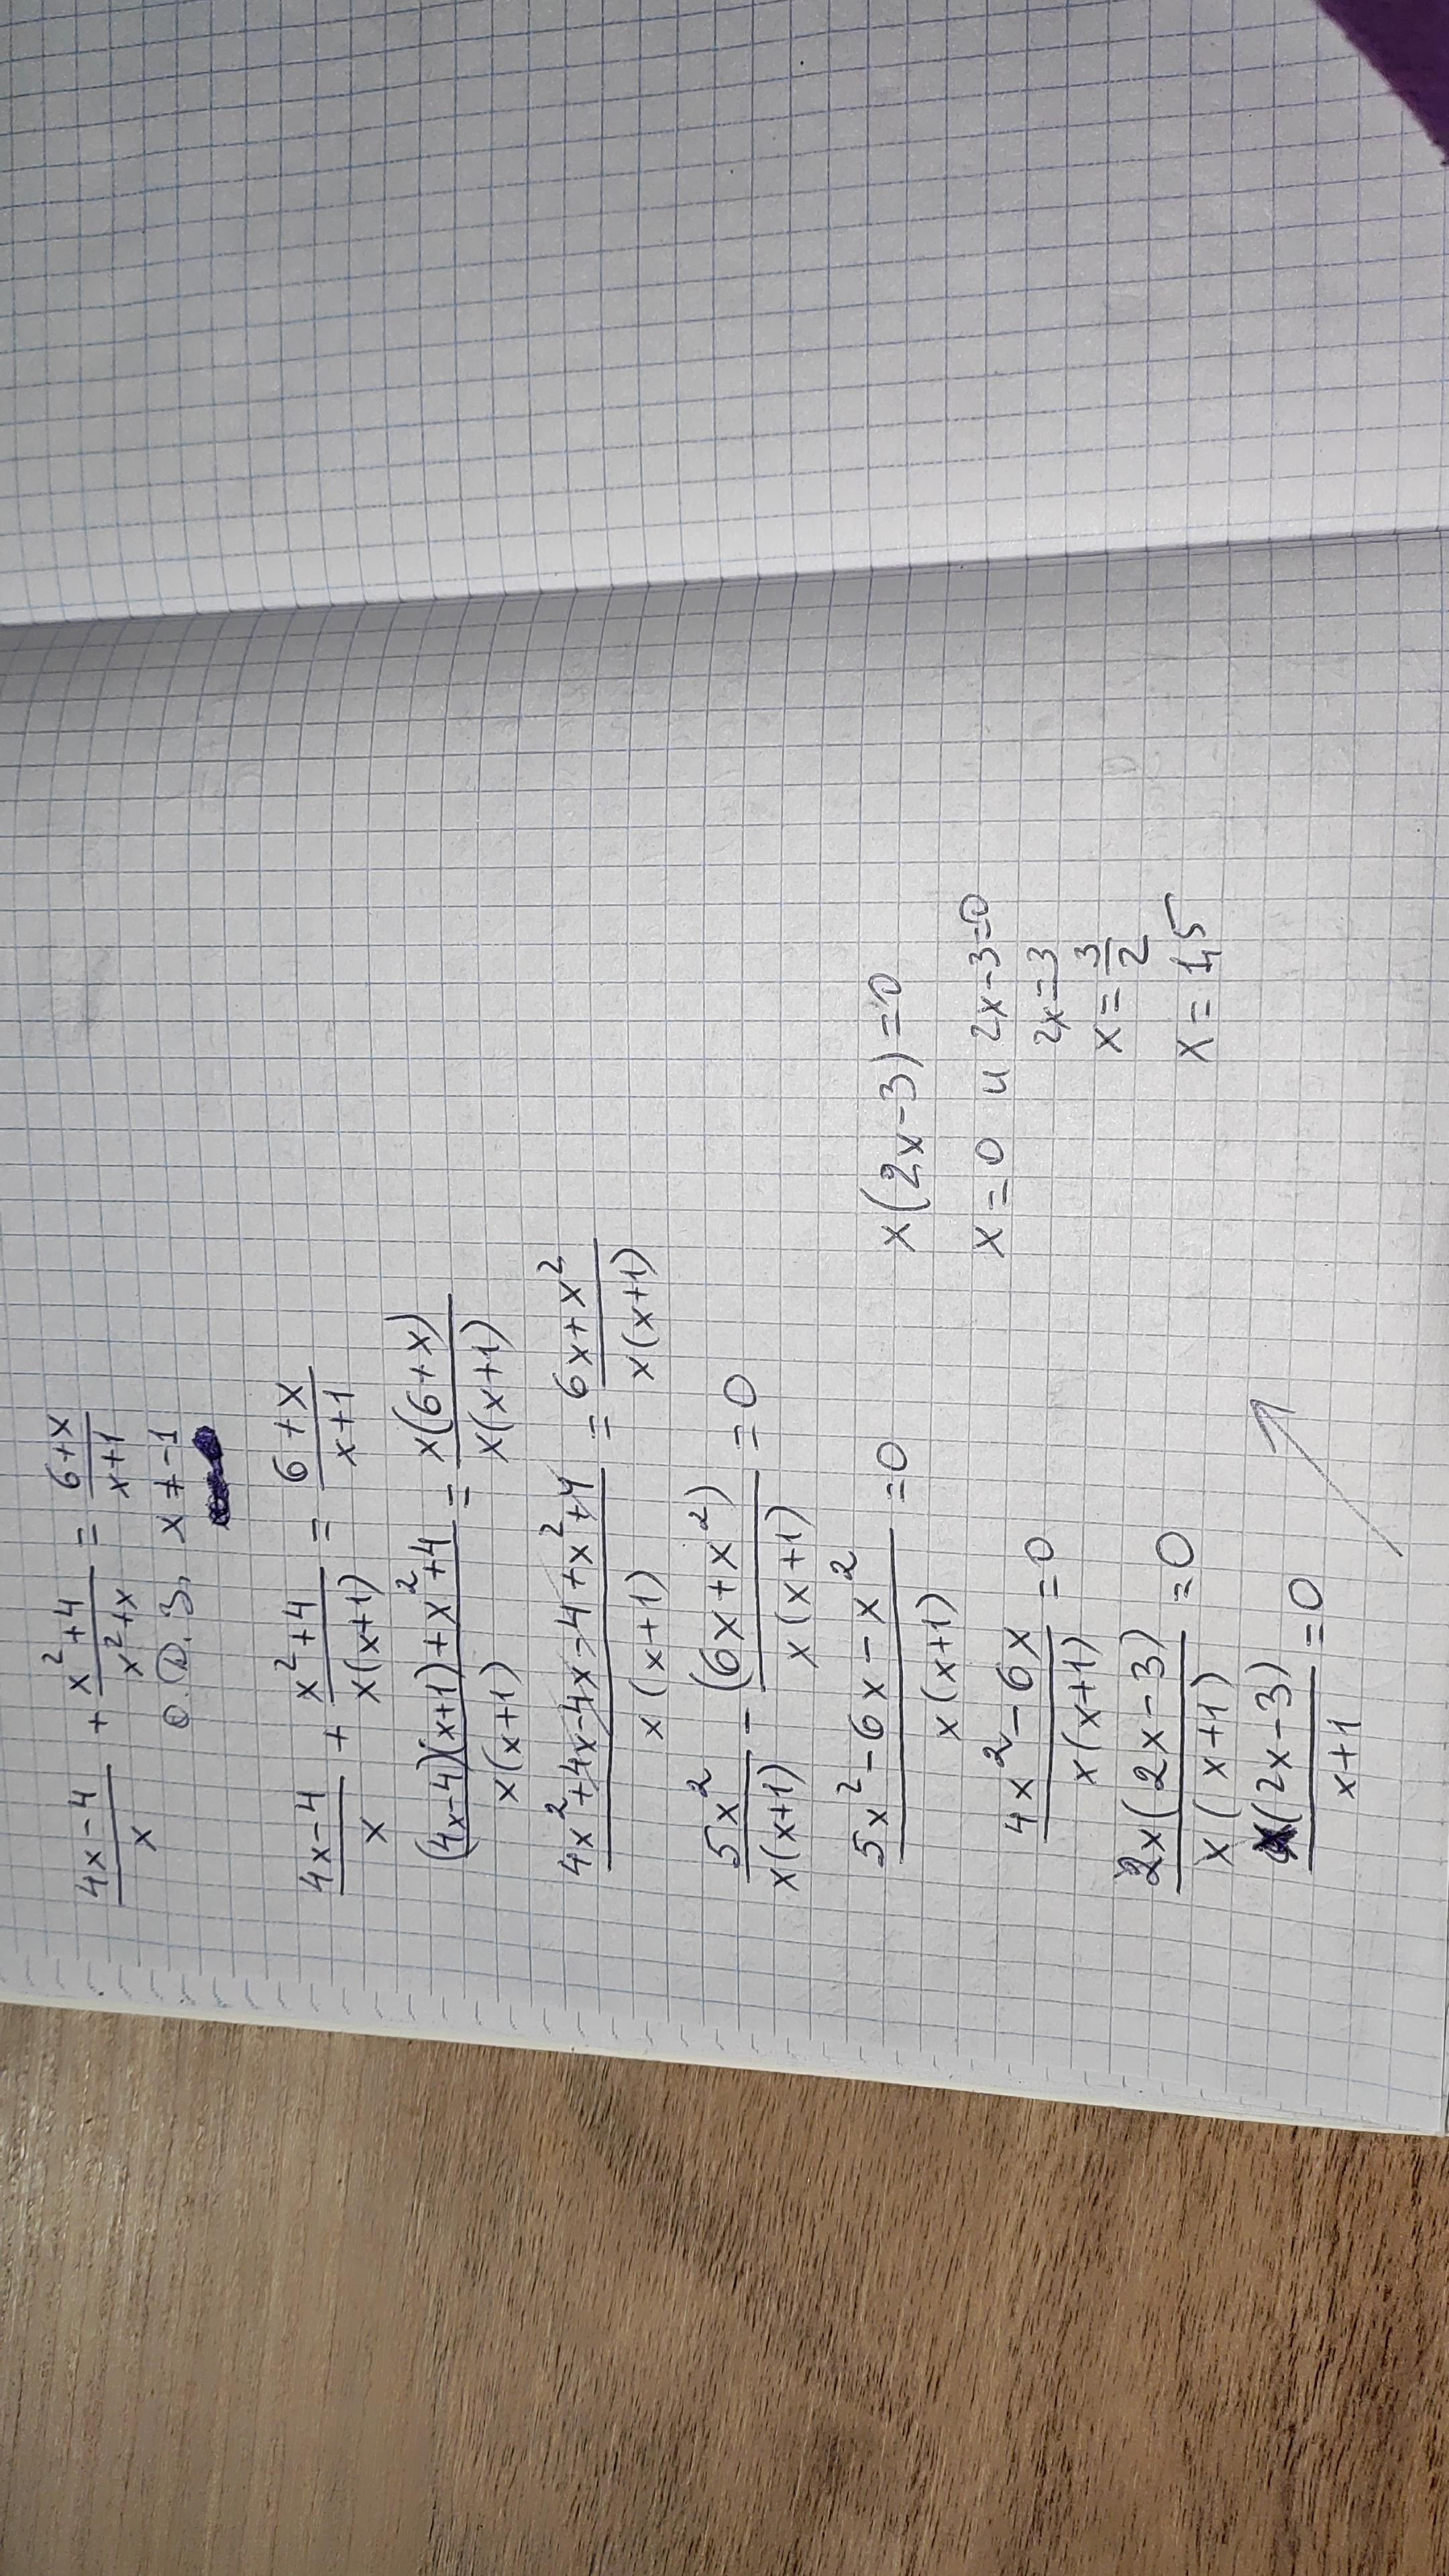 (4x-4)/x + (x²+4)/(x²+x) = (6+x)/(x+1)
О.Д.З. x ≠ -1
(4x-4)/x + (x²+4)/(x(x+1)) = (6+x)/(x+1)
((4x-4)(x+1)+x²+4)/(x(x+1)) = (x(6+x))/(x(x+1))
(4x²+4x-4x-4+x²+4)/(x(x+1)) = (6x+x²)/(x(x+1))
5x²/(x(x+1)) - (6x+x²)/(x(x+1)) = 0
(5x²-6x-x²)/(x(x+1)) = 0
(4x²-6x)/(x(x+1)) = 0
(2x(2x-3))/(x(x+1)) = 0
(2x-3)/(x+1) = 0
x(2x-3)=0
x=0 и 2x-3=0
2x=3
x=3/2
x=1,5